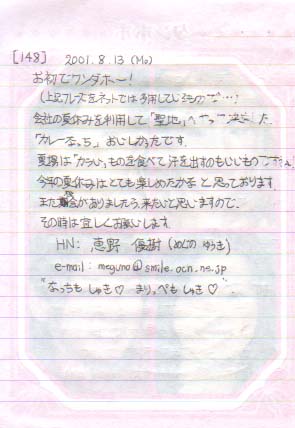 [148] 2001.8.13 (Mo)
お初でワンダホー!
(上記フレーズをネットでは多用しているもので…)
会社の夏休みを利用して「聖地」へやって来ました
「カレーなっち」おいしかったです。
夏場は「カラい」ものを食べて汗を出すのもいいもの
今年の夏休みはとても楽しめたかなと思っております。
また機会がありましたら来たいと思いますので、
その時は宜しくお願いします
HN: 恵野 優樹 (めぐの ゆうき)
e-mail: meguno@smile.ocn.ne.jp
"なっちも しゅき♡ まりっぺも しゅき♡"